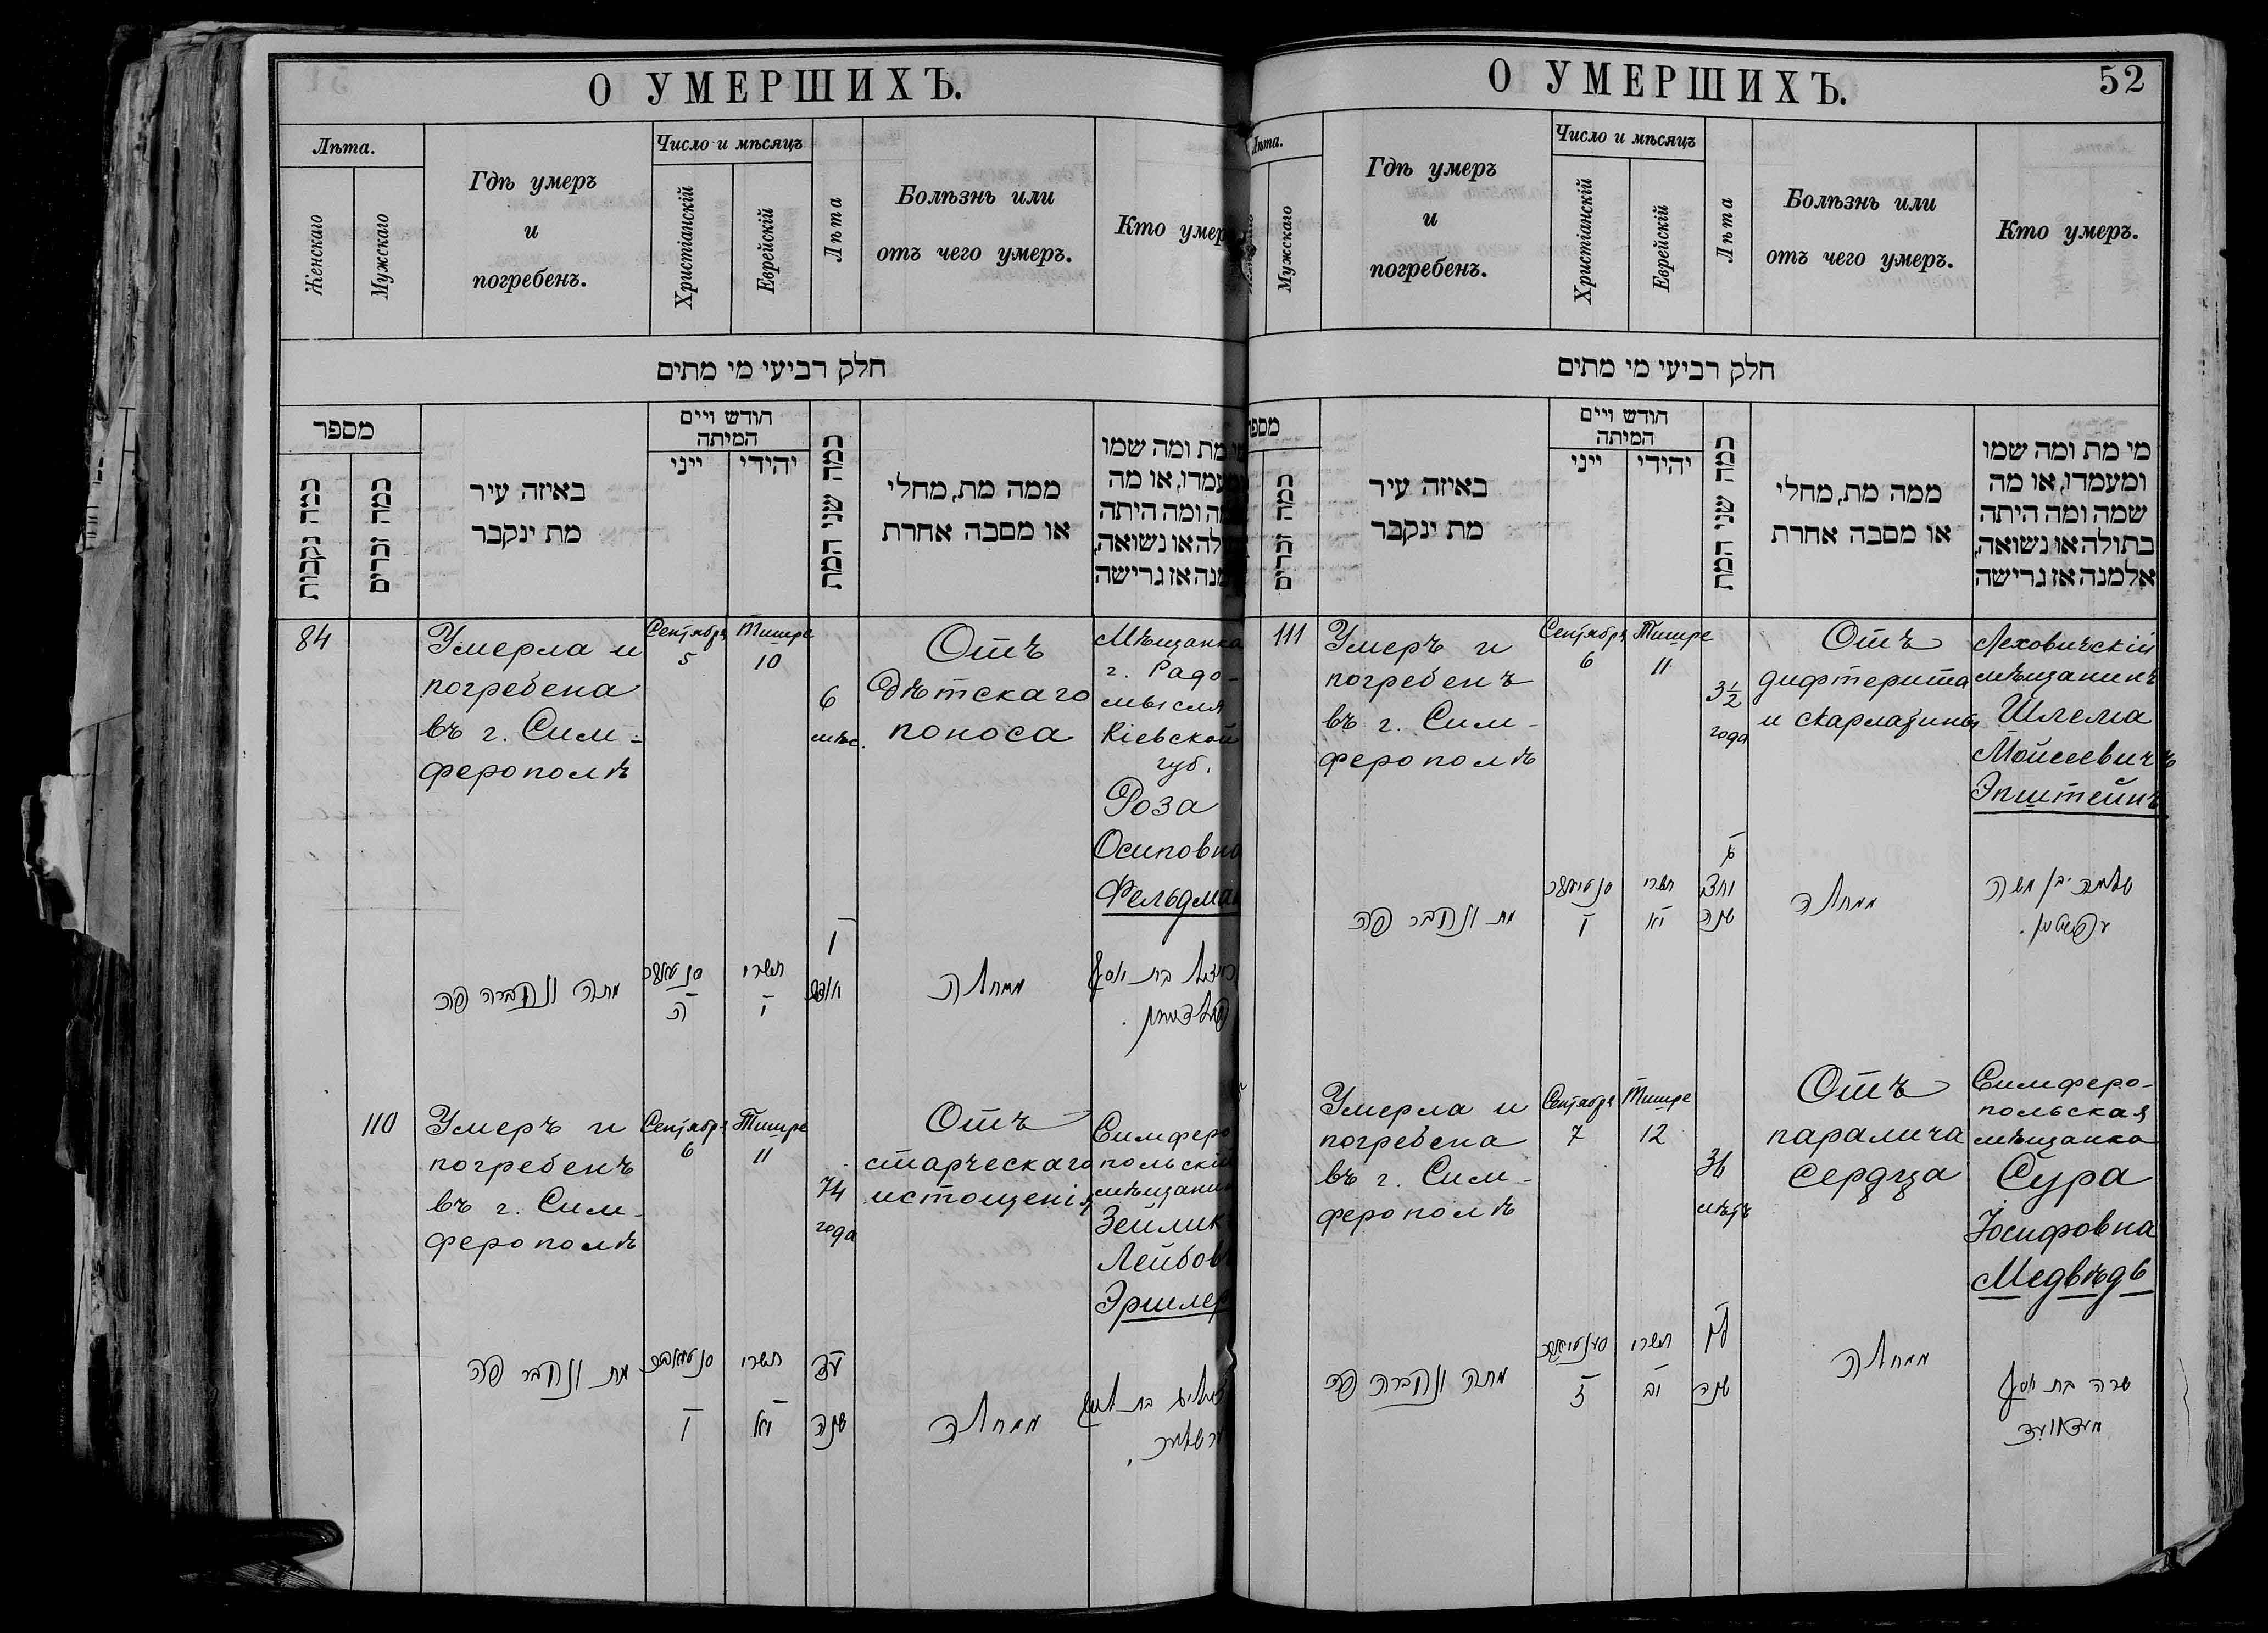 О УМЕРШИХЪ.
Лѣта.
Женскаго
Мужскаго
Гдѣ умеръ
и
погребенъ.
Число и мѣсяцъ
Христіанскій
Еврейскій
Лѣта
Болѣзнь или
отъ чего умеръ.
Кто умер
חלק רביעי מי מתים
מספר
כמה נקבות
כמה זכרים
באיזה עיר
מת ינקבר
חודש ויים
המיתה
ייני
יהודי
כמה שני המת
ממה מת, מחלי
או מסבה אחרת
מת ומה שמו
ומעמדו, או מה
ומה היתה
או נשואה,
או גרישה
84
Умерла и
погребена
въ г. Сим-
ферополѣ
Сентября
5
Тишре
10
6
мѣс.
Отъ
дѣтскаго
поноса
Мѣщанка
г. Радо-
мысля
Кіевской
губ.
Роза
Осиповна
Фельдман
מתה ונקברה פה
ה
תשרי
י
ו
ממחלה
בת יוסף
פעלדמאן.
110
Умеръ и
погребенъ
въ г. Сим-
ферополѣ
Сентября
6
Тишре
11
74
года
Отъ
старческаго
истощенія
Симферо
польскій
мѣщанин
Зейлик
Лейбов
Эршлер
מת ונקבר פה
ו
תשרי
יא
עד
שנה
ממחלה
ערשלער.
О УМЕРШИХЪ.
52
Лѣта.
Мужскаго
Гдѣ умеръ
и
погребенъ.
Число и мѣсяцъ
Христіанскій
Еврейскій
Лѣта
Болѣзнь или
отъ чего умеръ.
Кто умеръ.
חלק רביעי מי מתים
מספר
כמה זכרים
באיזה עיר
מת ינקבר
חודש ויים
המיתה
ייני
יהידי
כמה שני המת
ממה מת, מחלי
או מסבה אחרת
מי מת ומה שמו
ומעמדו, או מה
שמה ומה היתה
בתולה או נשואה,
אלמנה אז גרישה
111
Умеръ и
погребенъ
въ г. Сим-
ферополѣ
Сентября
6
Тишре
11
3½
года
Отъ
дифтерита
и скарлатины
Леховичскій
мѣщанинъ
Шлема
Мойсеевичъ
Эпштейнъ
מת ונקבר פה
ו
תשרי
יא
ג
וחצי
שנה
ממחלה
שלמה בן משה
עפשטיין.
Умерла и
погребена
въ г. Сим-
ферополѣ
Сентября
7
Тишре
12
36
лѣтъ
Отъ
паралича
сердца
Симферо-
польская
мѣщанка
Сура
Іосифовна
Медвѣдь
מתה ונקברה פה
ז
תשרי
יב
לו
שנה
ממחלה
שרה בת יוסף
מעדוועד